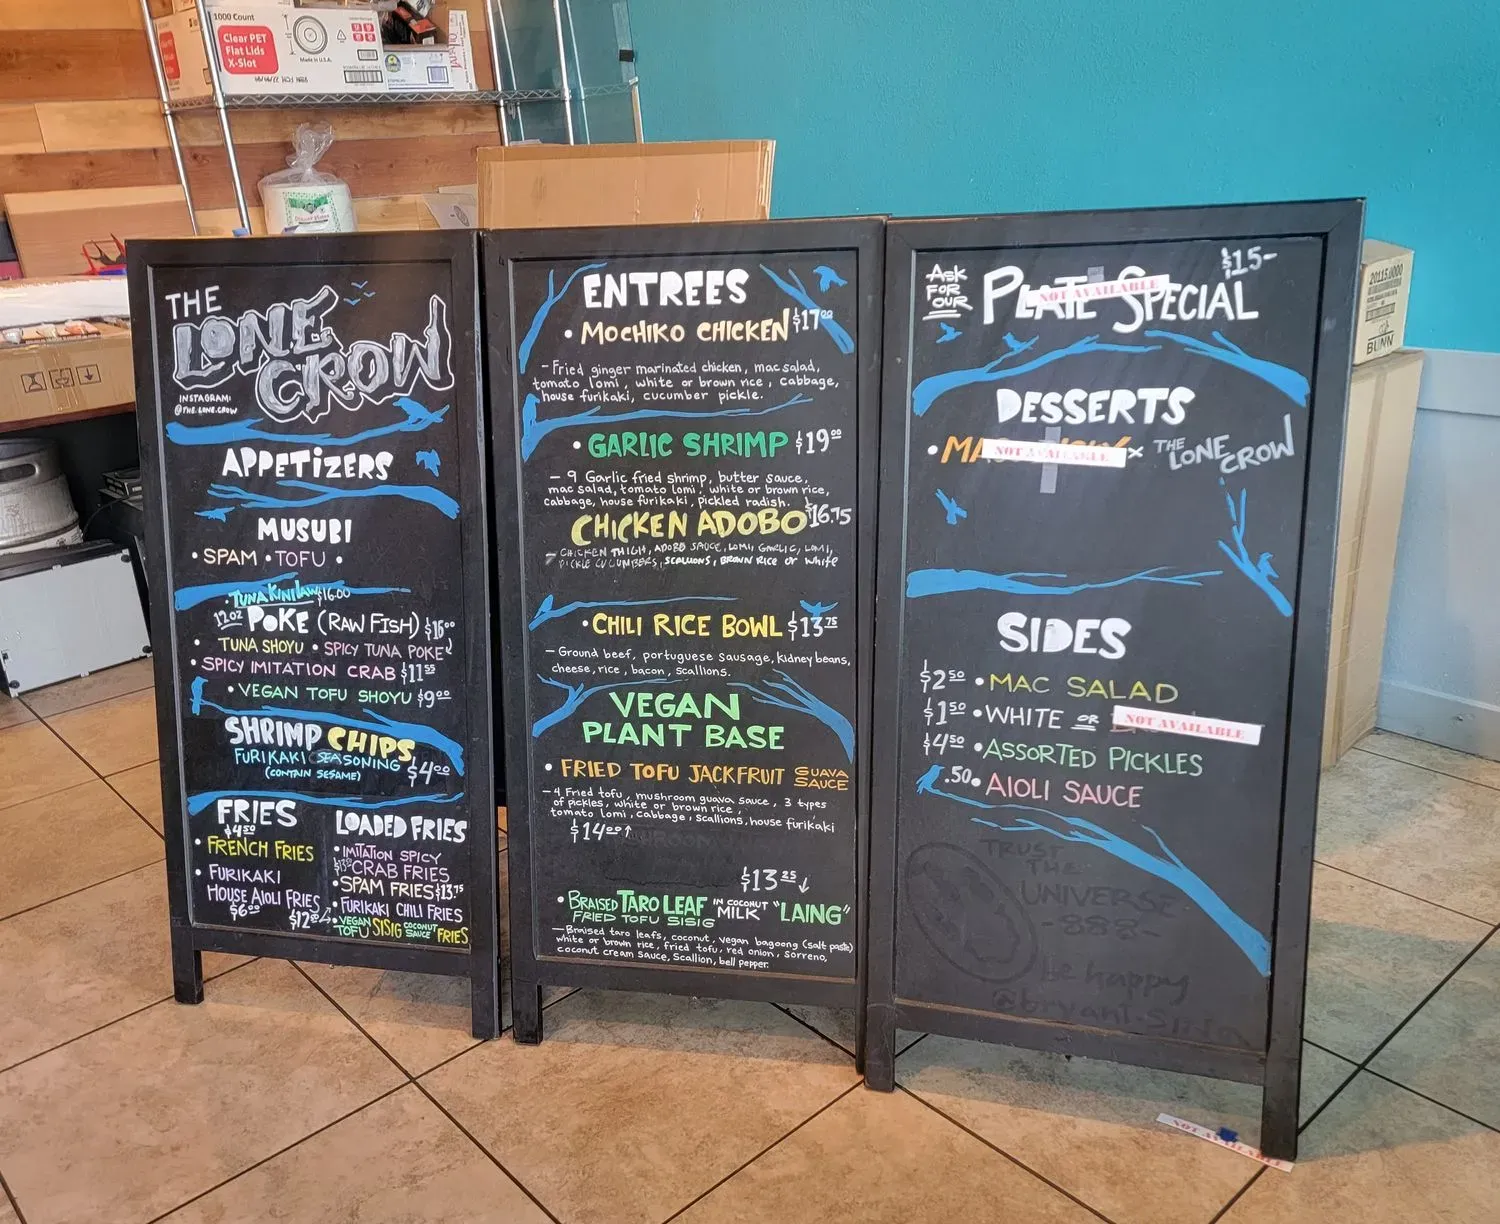 1000 Count
Clear PET
Flat Lids
X-Slot
Made in U.S.A.
THE
LONE
CROW
INSTAGRAM:
@THE.LONE.CROW
APPETiZERS
MUSUBI
• SPAM • TOFU •
• TUNA KINILAW $16.00
12oz POKE (RAW FISH) $16⁰⁰
• TUNA SHOYU • SPICY TUNA POKE
• SPICY IMITATION CRAB $11⁵⁵
• VEGAN TOFU SHOYU $9⁰⁰
SHRIMP CHIPS
FURIKAKI SEASONING $4⁰⁰
(CONTAIN SESAME)
FRIES
$4⁵⁰
• FRENCH FRIES
• FURIKAKI
HOUSE AIOLI FRIES
$6⁰⁰
LOADED FRIES
• IMITATION SPICY
CRAB FRIES
• SPAM FRIES $13.⁷⁵
• FURIKAKI CHILI FRIES
$12
• VEGAN TOFU SISIG COCONUT SAUCE FRIES
ENTREES
• MOCHIKO CHICKEN $17⁰⁰
- Fried ginger marinated chicken, mac salad,
tomato lomi, white or brown rice, cabbage,
house furikaki, cucumber pickle.
• GARLIC SHRIMP $19⁰⁰
- 9 Garlic fried shrimp, butter sauce,
mac salad, tomato lomi, white or brown rice,
cabbage, house furikaki, pickled radish.
CHICKEN ADOBO $16.75
- CHICKEN THIGH, ADOBO SAUCE, LOMI, GARLIC, LOMI,
PICKLE CUCUMBERS, SCALLIONS, BROWN RICE or White
• CHILI RICE BOWL $13⁷⁵
- Ground beef, portuguese sausage, kidney beans,
cheese, rice, bacon, scallions.
VEGAN
PLANT BASE
• FRIED TOFU JACKFRUIT GUAVA SAUCE
- 4 Fried tofu, mushroom guava sauce, 3 types
of pickles, white or brown rice,
tomato lomi, cabbage, scallions, house furikaki
$14⁰⁰↑
$13²⁵↓
• BRAISED TARO LEAF IN COCONUT MILK "LAING"
FRIED TOFU SISIG
- Braised taro leafs, coconut, vegan bagoong (salt paste)
white or brown rice, fried tofu, red onion, sorreno,
coconut cream sauce, Scallion, bell pepper.
ASK
FOR
OUR
PLATE SPECIAL
$15-
NOT AVAILABLE
DESSERTS
NOT AVAILABLE
× THE LONE CROW
SIDES
$2⁵⁰ • MAC SALAD
$1⁵⁰ • WHITE OR
NOT AVAILABLE
$4⁵⁰ • ASSORTED PICKLES
.50 • AIOLI SAUCE
TRUST
THE
UNIVERSE
- 888 -
be happy
NOT AVAILABLE
20115.0000
BUNN